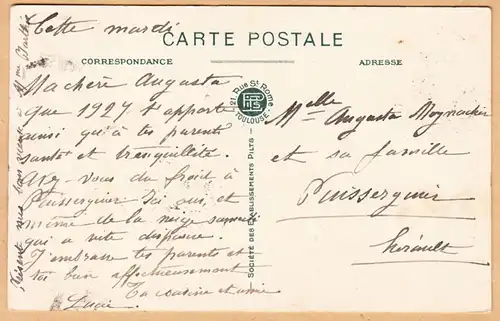 Cette mardi
CARTE POSTALE
CORRESPONDANCE
ADRESSE
Ma chère Augusta
Que 1927 t'apporte
ainsi qu'à tes parents
santé et tranquillité.
Avez-vous du froid à
Puisserguier Ici oui, et
même de la neige samedi
qui a vite disparue.
J'embrasse tes parents et
toi bien affectueusement
Ta cousine et amie
Lucie
21, Rue St Rome
TOULOUSE
SOCIÉTÉ DES ÉTABLISSEMENTS PILTS
Melle Augusta
et sa famille
Puisserguier
Hérault